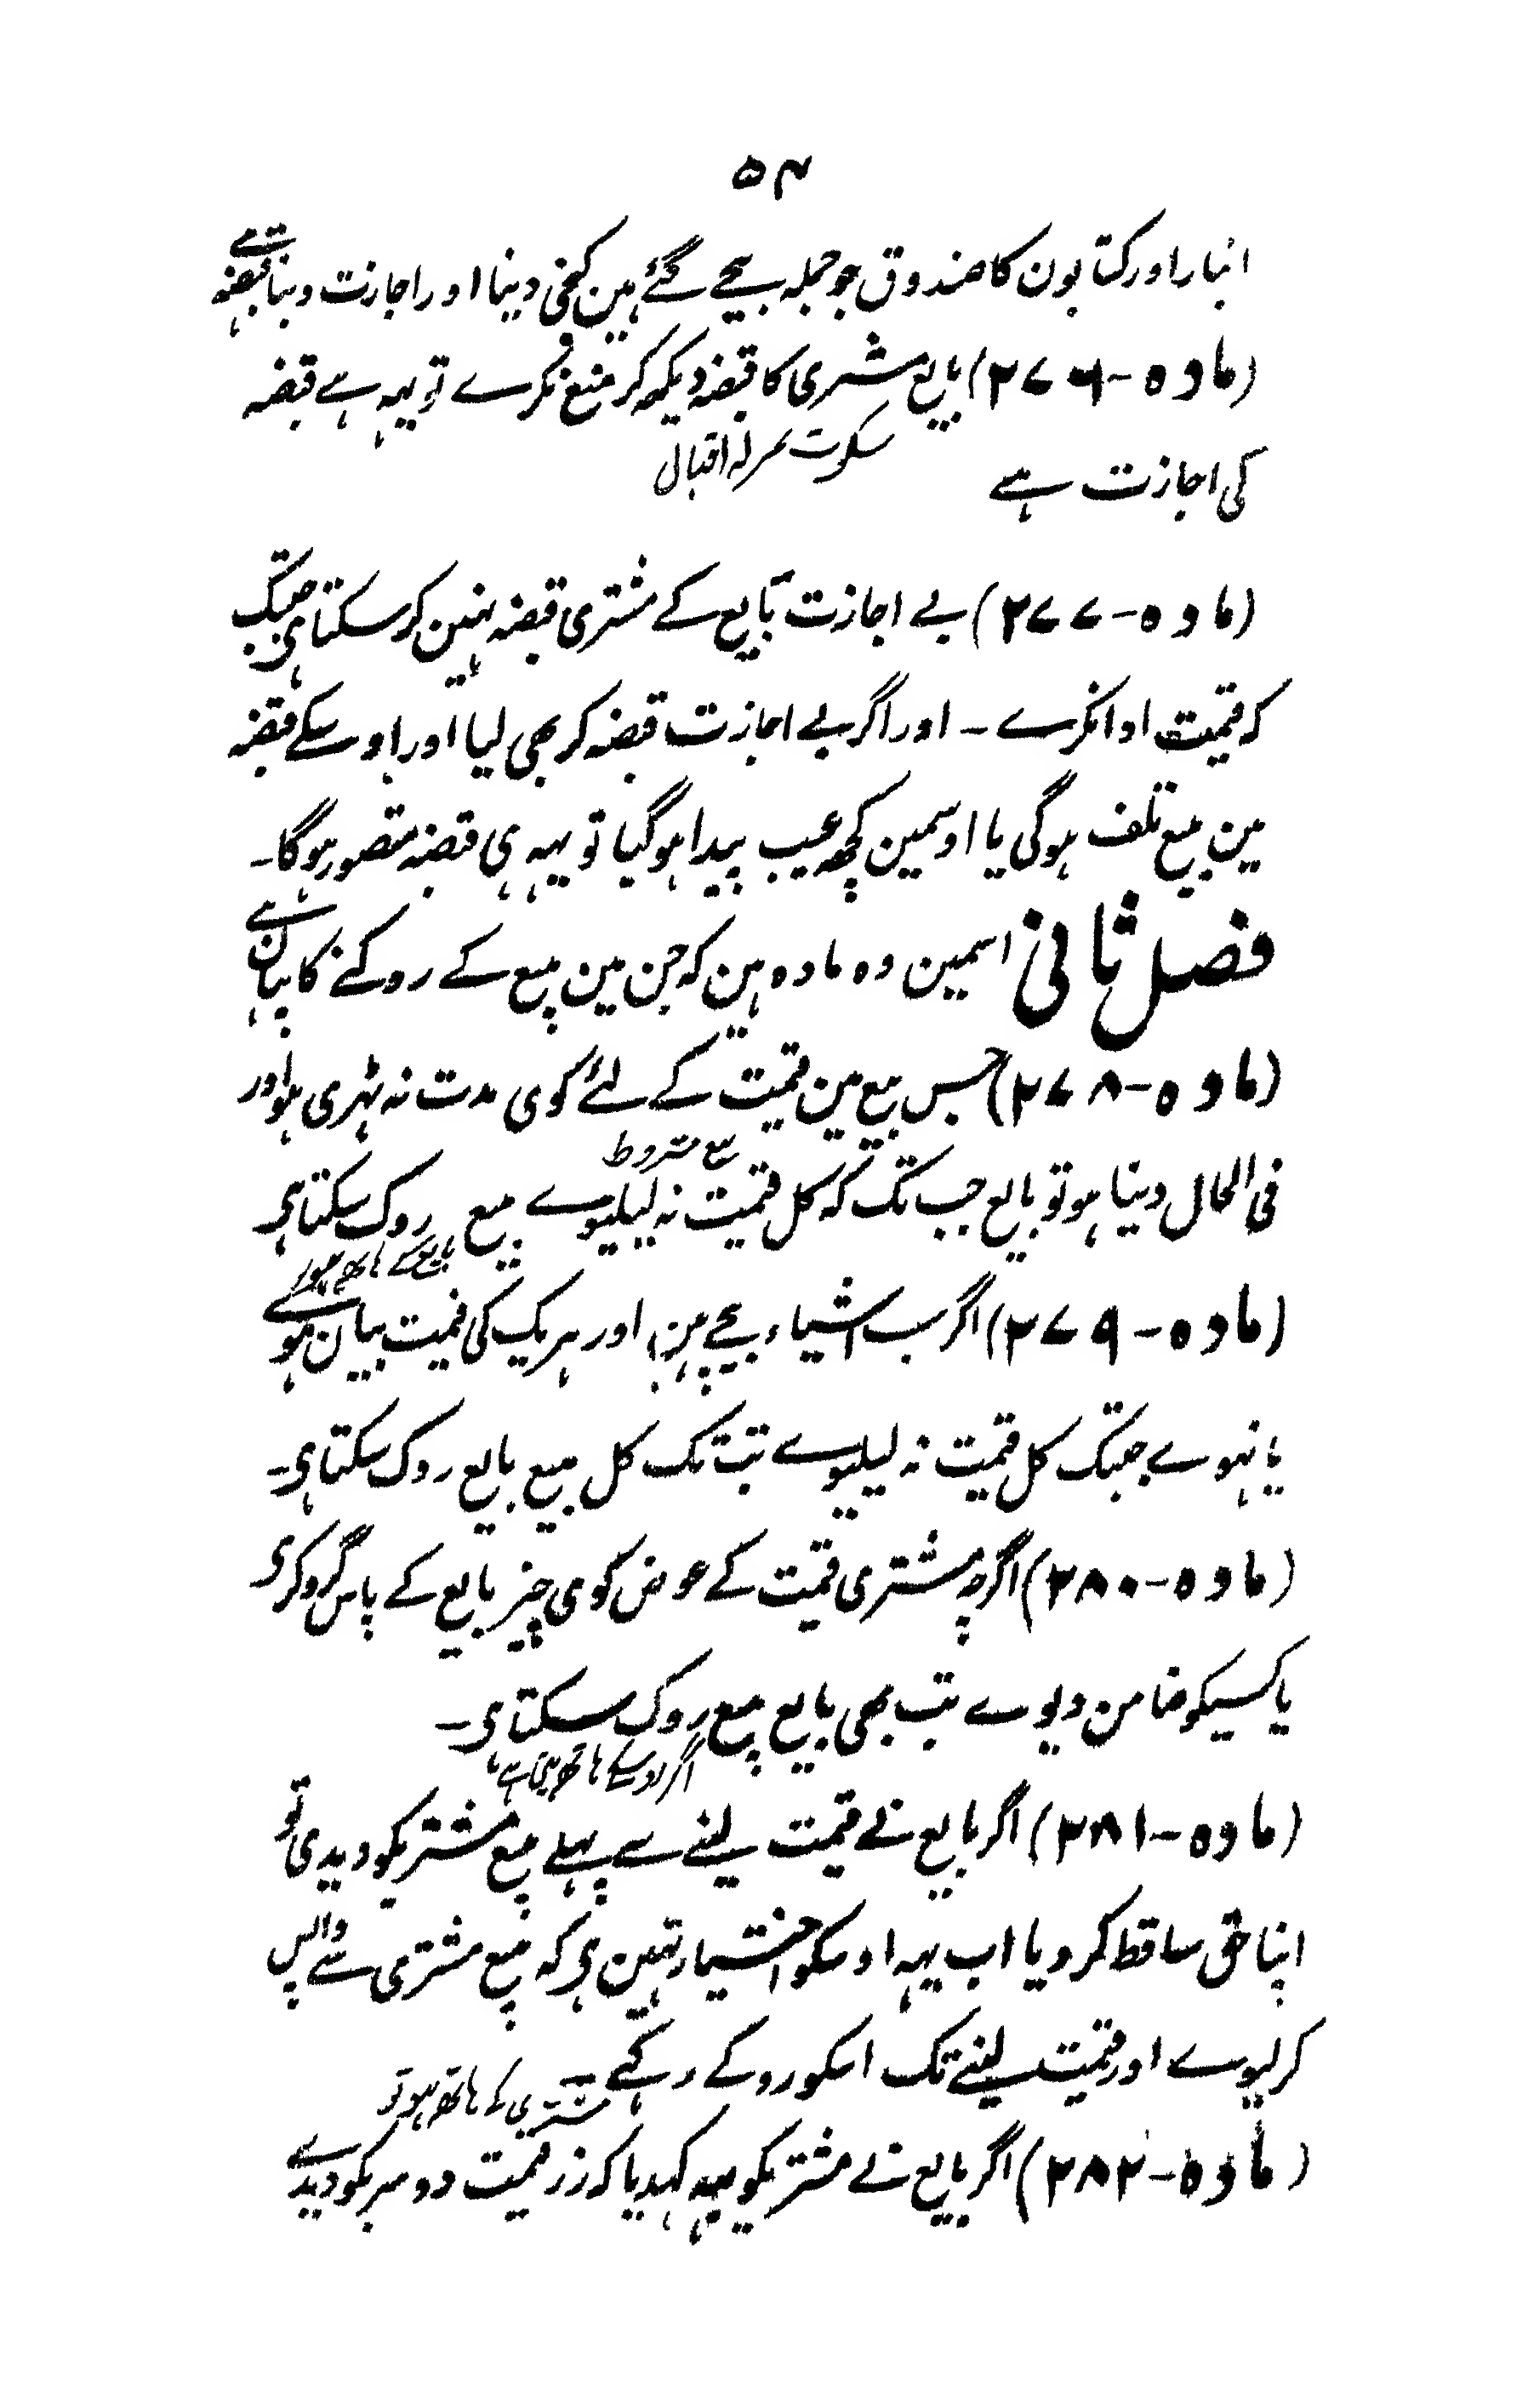 ۵۴
انبار اور کتابون کا صندوق جو جملہ بیچے گئے ہین کنجی دینا اور اجازت دینا قبضہ ہے
(مادہ-۲۷۶) بایع مشتری کا قبضہ دیکھ کر منع نکرے تو یہہ ہے قبضہ
سکوت بمنزلہ اقبال
کی اجازت ہے
(مادہ-۲۷۷) بے اجازت بایع کے مشتری قبضہ نہین کرسکتا ہی جبتک
کہ قیمت ادا نکرے - اور اگر بے اجازت قبضہ کر بھی لیا اور اوسکے قبضہ
مین بیع تلف ہوگی یا اوسمین کچھ عیب پیدا ہوگیا تو یہہ ہی قبضہ متصور ہوگا -
فصل ثانی اسمین وہ مادہ ہین کہ جن مین بیع کے روکنے کا بیان ہے
(مادہ-۲۷۸) جس بیع مین قیمت کے لئے کوی مدت نہ ٹہری ہو اور
بیع مشروط
فی الحال دینا ہو تو بایع جب تک کہ کل قیمت نہ لیلیوے بیع روک سکتا ہی
بایع کے ہاتھ
(مادہ-۲۷۹) اگر سب اشیاء بیچے ہین اور ہریک کی قیمت بیان ہوئے
یا نہوے جبتک کل قیمت نہ لیلیوے تب تک کل بیع بایع روک سکتا ہی -
(مادہ-۲۸۰) اگرچہ مشتری قیمت کے عوض کوی چیز بایع کے پاس گرو کری
یا کسیکو ضامن دیوے تب بھی بایع بیع روک سکتا ہی -
اگر اوسکے ہاتھ
(مادہ-۲۸۱) اگر بایع نے قیمت لینے سے پہلے بیع مشتریکو دیدی تو
اپنا حق ساقط کردیا اب یہہ اوسکو اختیار نہین ہی کہ بیع مشتری سے واپس
کرلیوے اور قیمت لینے تک اسکو روکے رکھے -
مشتری کے ہاتھ ہو تو
(مادہ-۲۸۲) اگر بایع نے مشتریکو یہہ کہدیا کہ زر قیمت دوسریکو دیدے